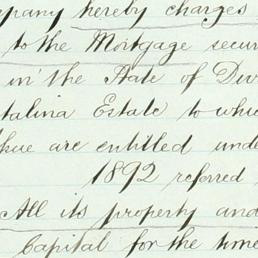 pany hereby charges
to the Mortgage secur
in the State of Div
talina Estate to whic
hue are entitled unde
1892 referred
All its property and
Capital for the time